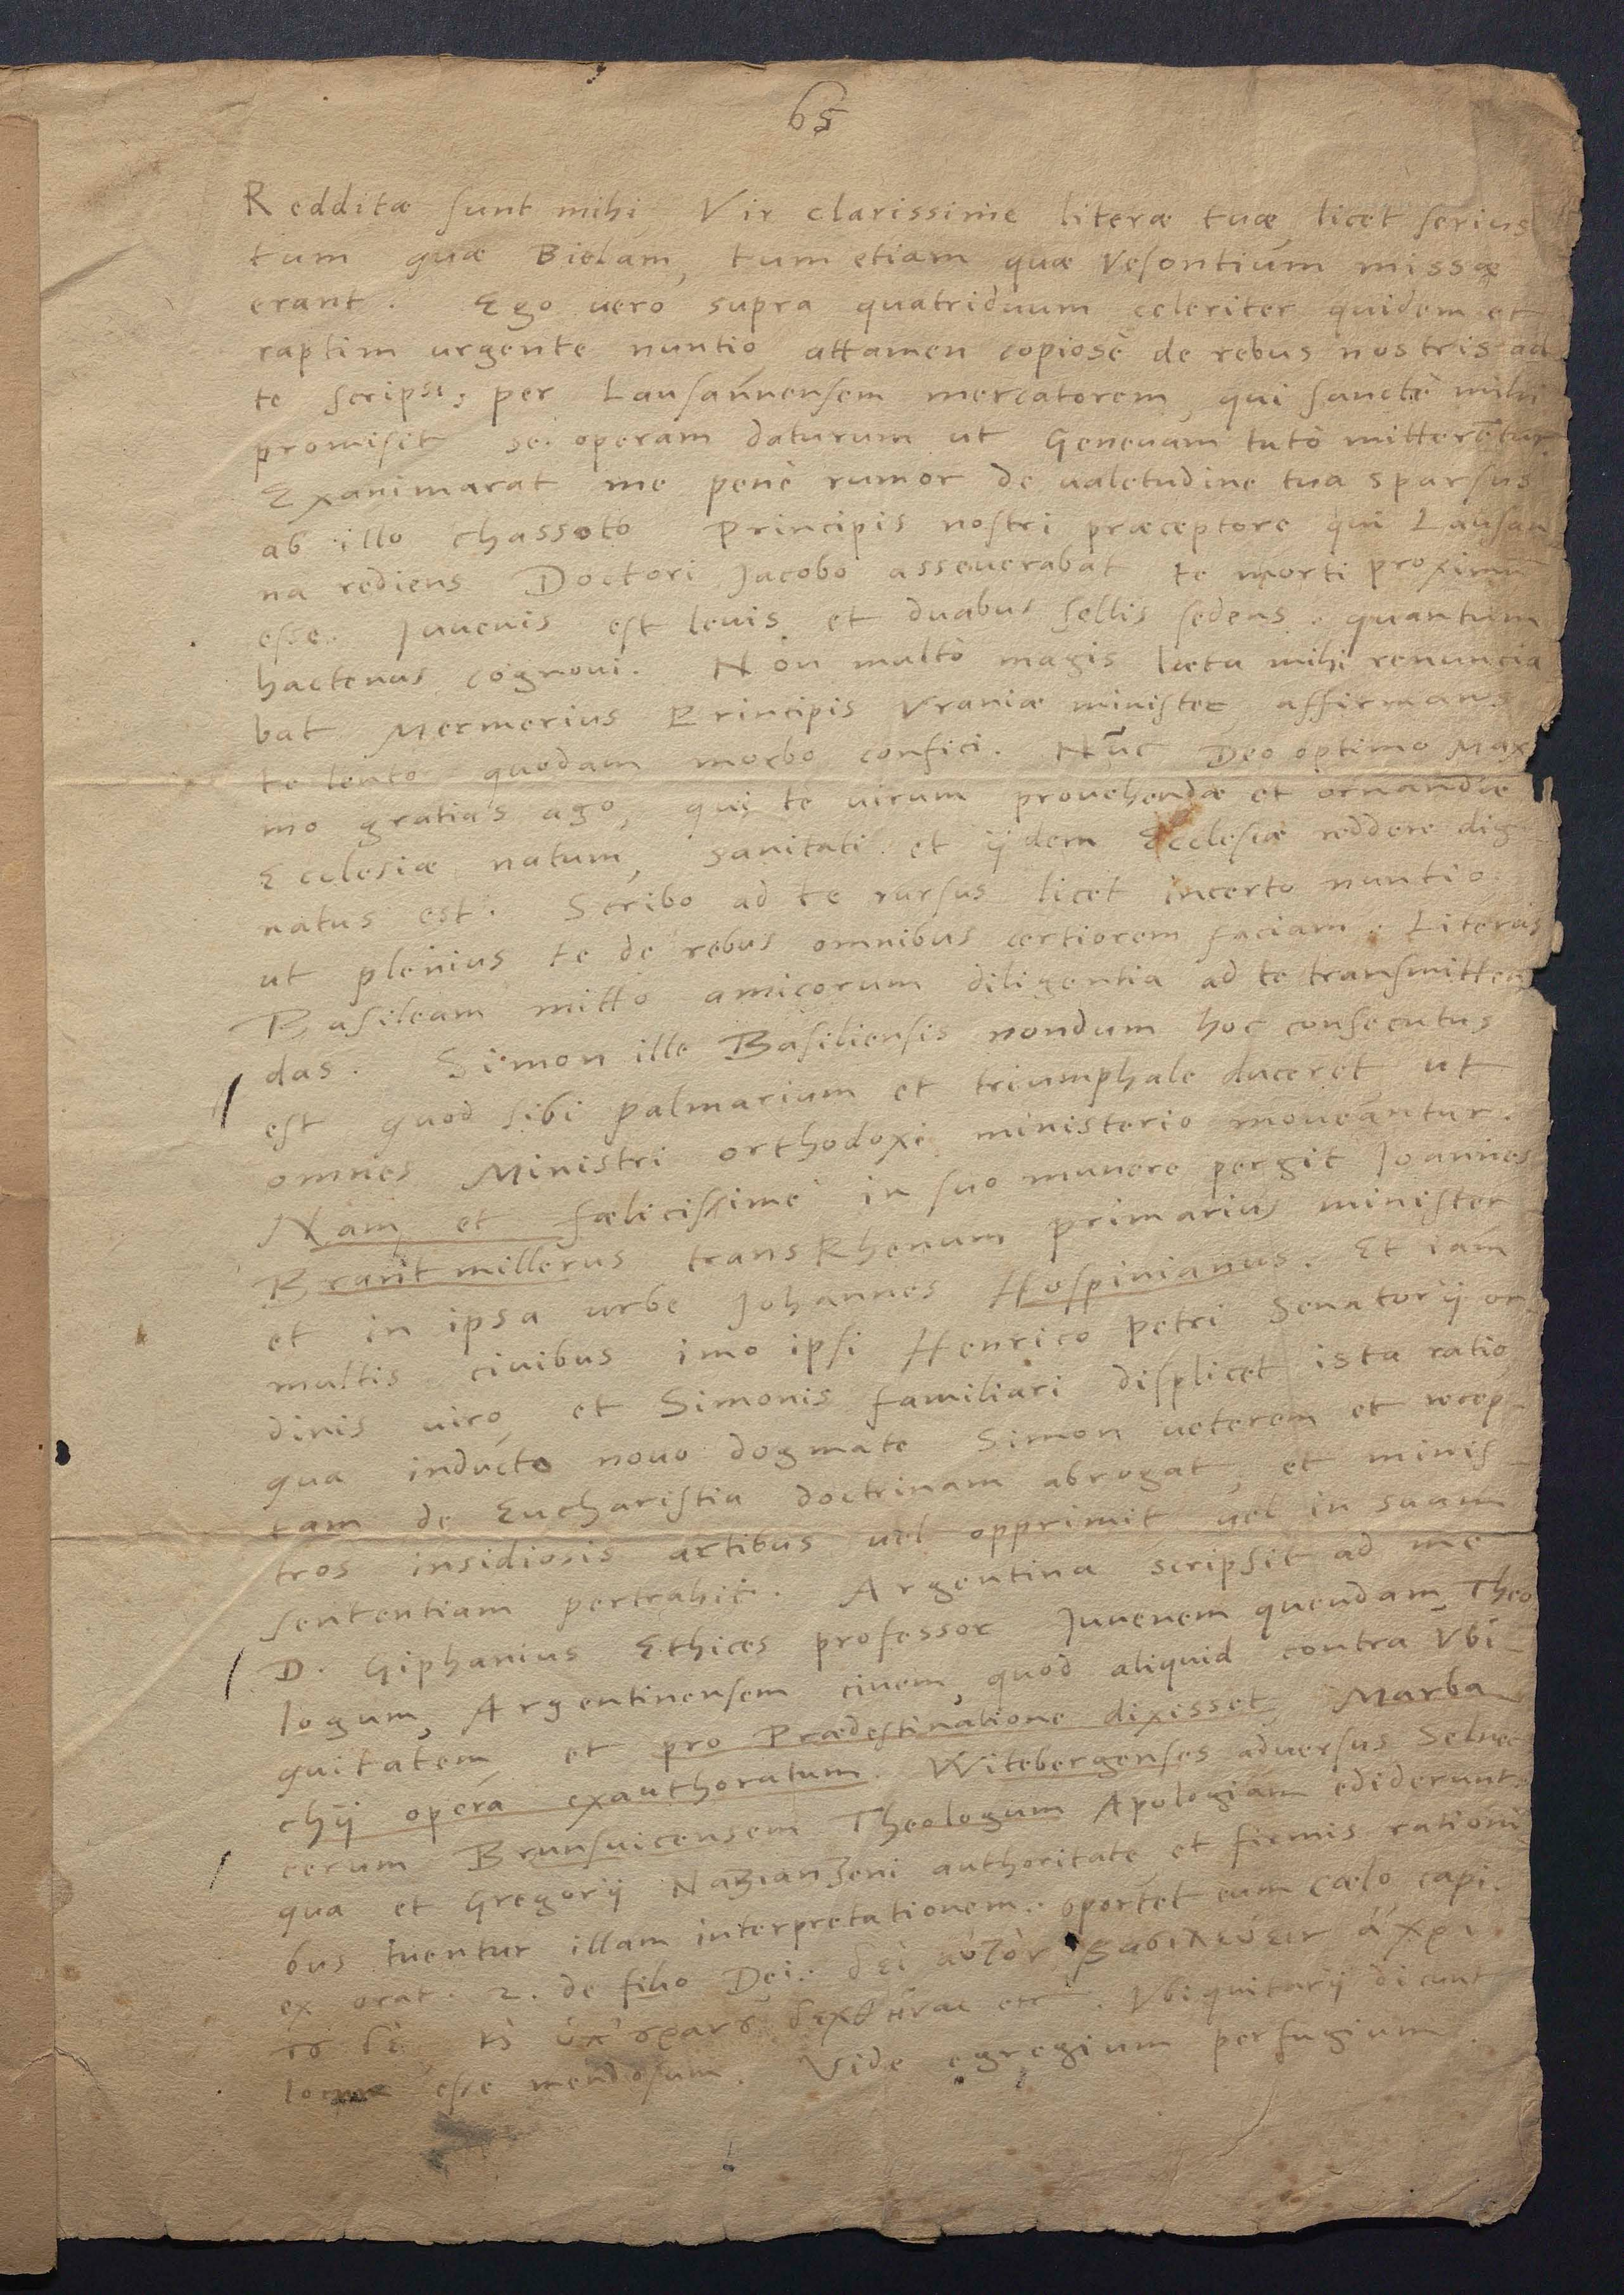 65
Redditæ sunt mihi Vir clarissime literæ tuæ licet serius
tum quæ Bielam, tum etiam quæ Vesontium missæ
erant. Ego vero supra quatriduum celeriter quidem et
raptim urgente nuntio attamen copiosè de rebus nostris ad
te scripsi, per Lausannensem mercatorem, qui sanctè mihi
promisit se operam daturum ut Geneuam tutò mitterentur.
Exanimarat me penè rumor de ualetudine tua sparsus
ab illo Chassoto Principis nostri præceptore qui Lausan
na rediens Doctori Jacobo asseuerabat te morti proximū
esse. Juuenis est leuis et duabus sellis sedens, quantum
hactenus cognoui. Non multò magis læta mihi renuncia
bat Mermerius Principis Vraniæ minister affirmans
te lento quodam morbo confici. Nūc Deo optimo Maxi
mo gratias ago, qui te uirum prouehendæ et ornandæ
Ecclesiæ natum, sanitati et ijdem Ecclesiæ reddere dig
natus est. Scribo ad te rursus licet incerto nuntio.
ut plenius te de rebus omnibus certiorem faciam. Literas
Basileam mitto amicorum diligentia ad te transmitten
das. Simon ille Basiliensis nondum hoc consecutus
est quod sibi palmarium et triumphale duceret, ut
omnes Ministri orthodoxi ministerio moueantur.
Nam et fælicissimè in suo munere pergit Joannes
Brantmillerus trans Rhenum primarius minister
et in ipsa urbe Johannes Hospinianus. Et iam
multis ciuibus imo ipsi Henrico Petri Senatorij or
dinis uiro, et Simonis familiari displicet ista ratio,
qua inducto nouo dogmate Simon ueterem et recep-
tam de Eucharistia doctrinam abrogat, et minis-
tros insidiosis artibus uel opprimit uel in suam
sententiam pertrahit. Argentina scripsit ad me
D. Giphanius Ethices professor Juuenem quendam Theo
logum, Argentinensem ciuem, quòd aliquid contra Vbi-
quitatem et pro Prædestinatione dixisset, Marba
chij opera exauthoratum. Witebergenses aduersus Selnec
cerum Brunsuicensem Theologum Apologiam ediderunt,
qua et Gregorij Nazianzeni authoritate et firmis rationi
bus tuentur illam interpretationem: oportet eum cælo capi.
ex orat. 2. de filio Dei: δεῖ αὐτὸν βασιλεύειν ἄχρι
δεχθῆναι etc. Vbiquitarij dicunt
locum esse mendosum. Vide egregium perfugium.